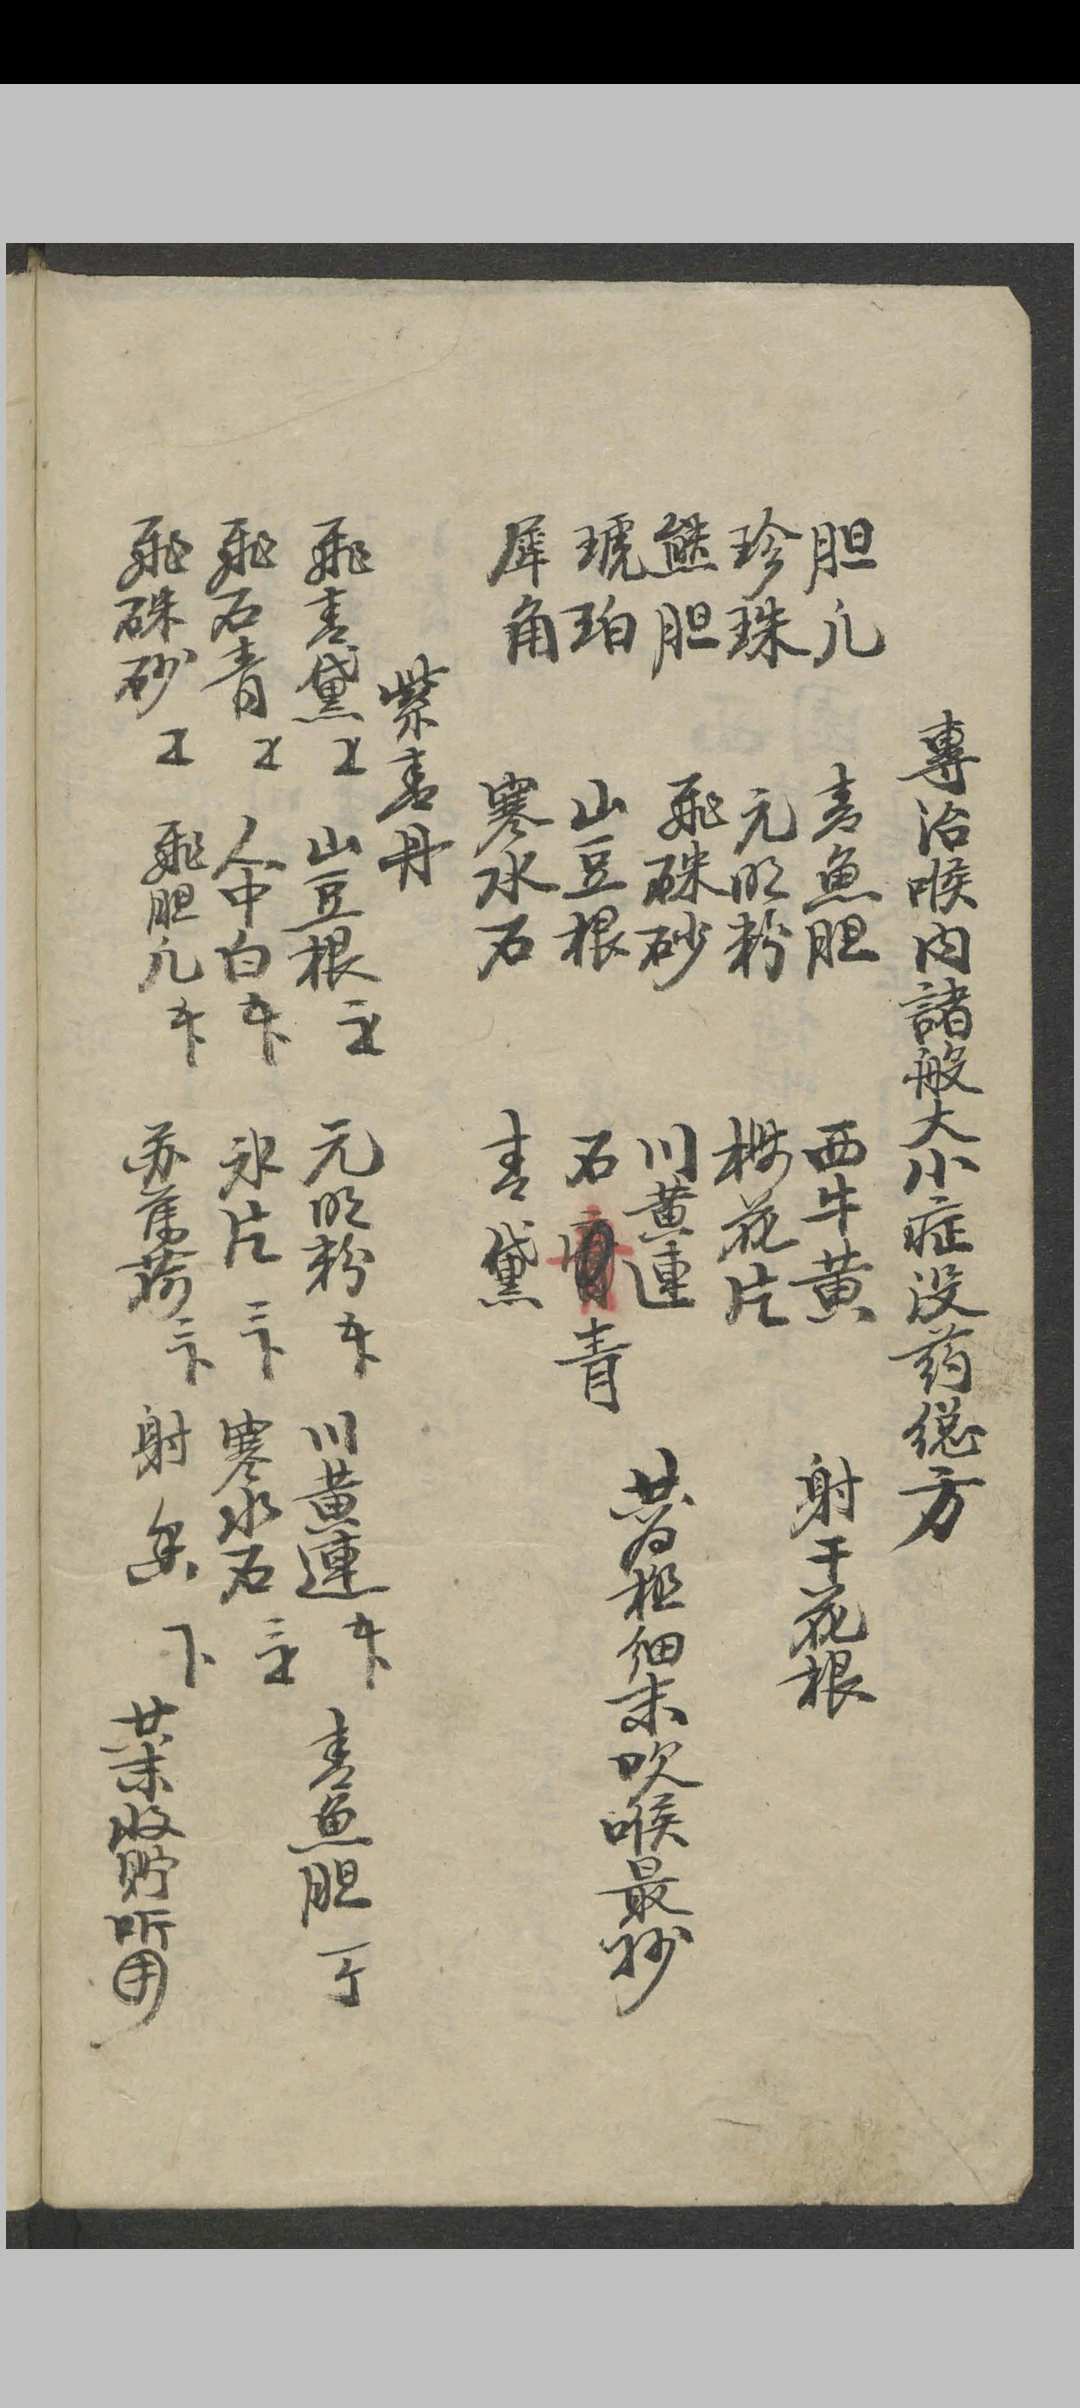 專治喉內諸般大小症没药總方
胆凡 青魚胆 西牛黄 射干花根
珍珠 元明粉 梅花片
熊胆 飛硃砂 川黄連 共為極細末吹喉最妙
琥珀 山豆根 石青
犀角 寒水石 青黛
紫青丹
飛青黛 山豆根 元明粉 川黄連 青魚胆
飛石青 人中白 氷片 寒水石
飛硃砂 飛胆凡 苏薄荷 射香 共末收貯听用